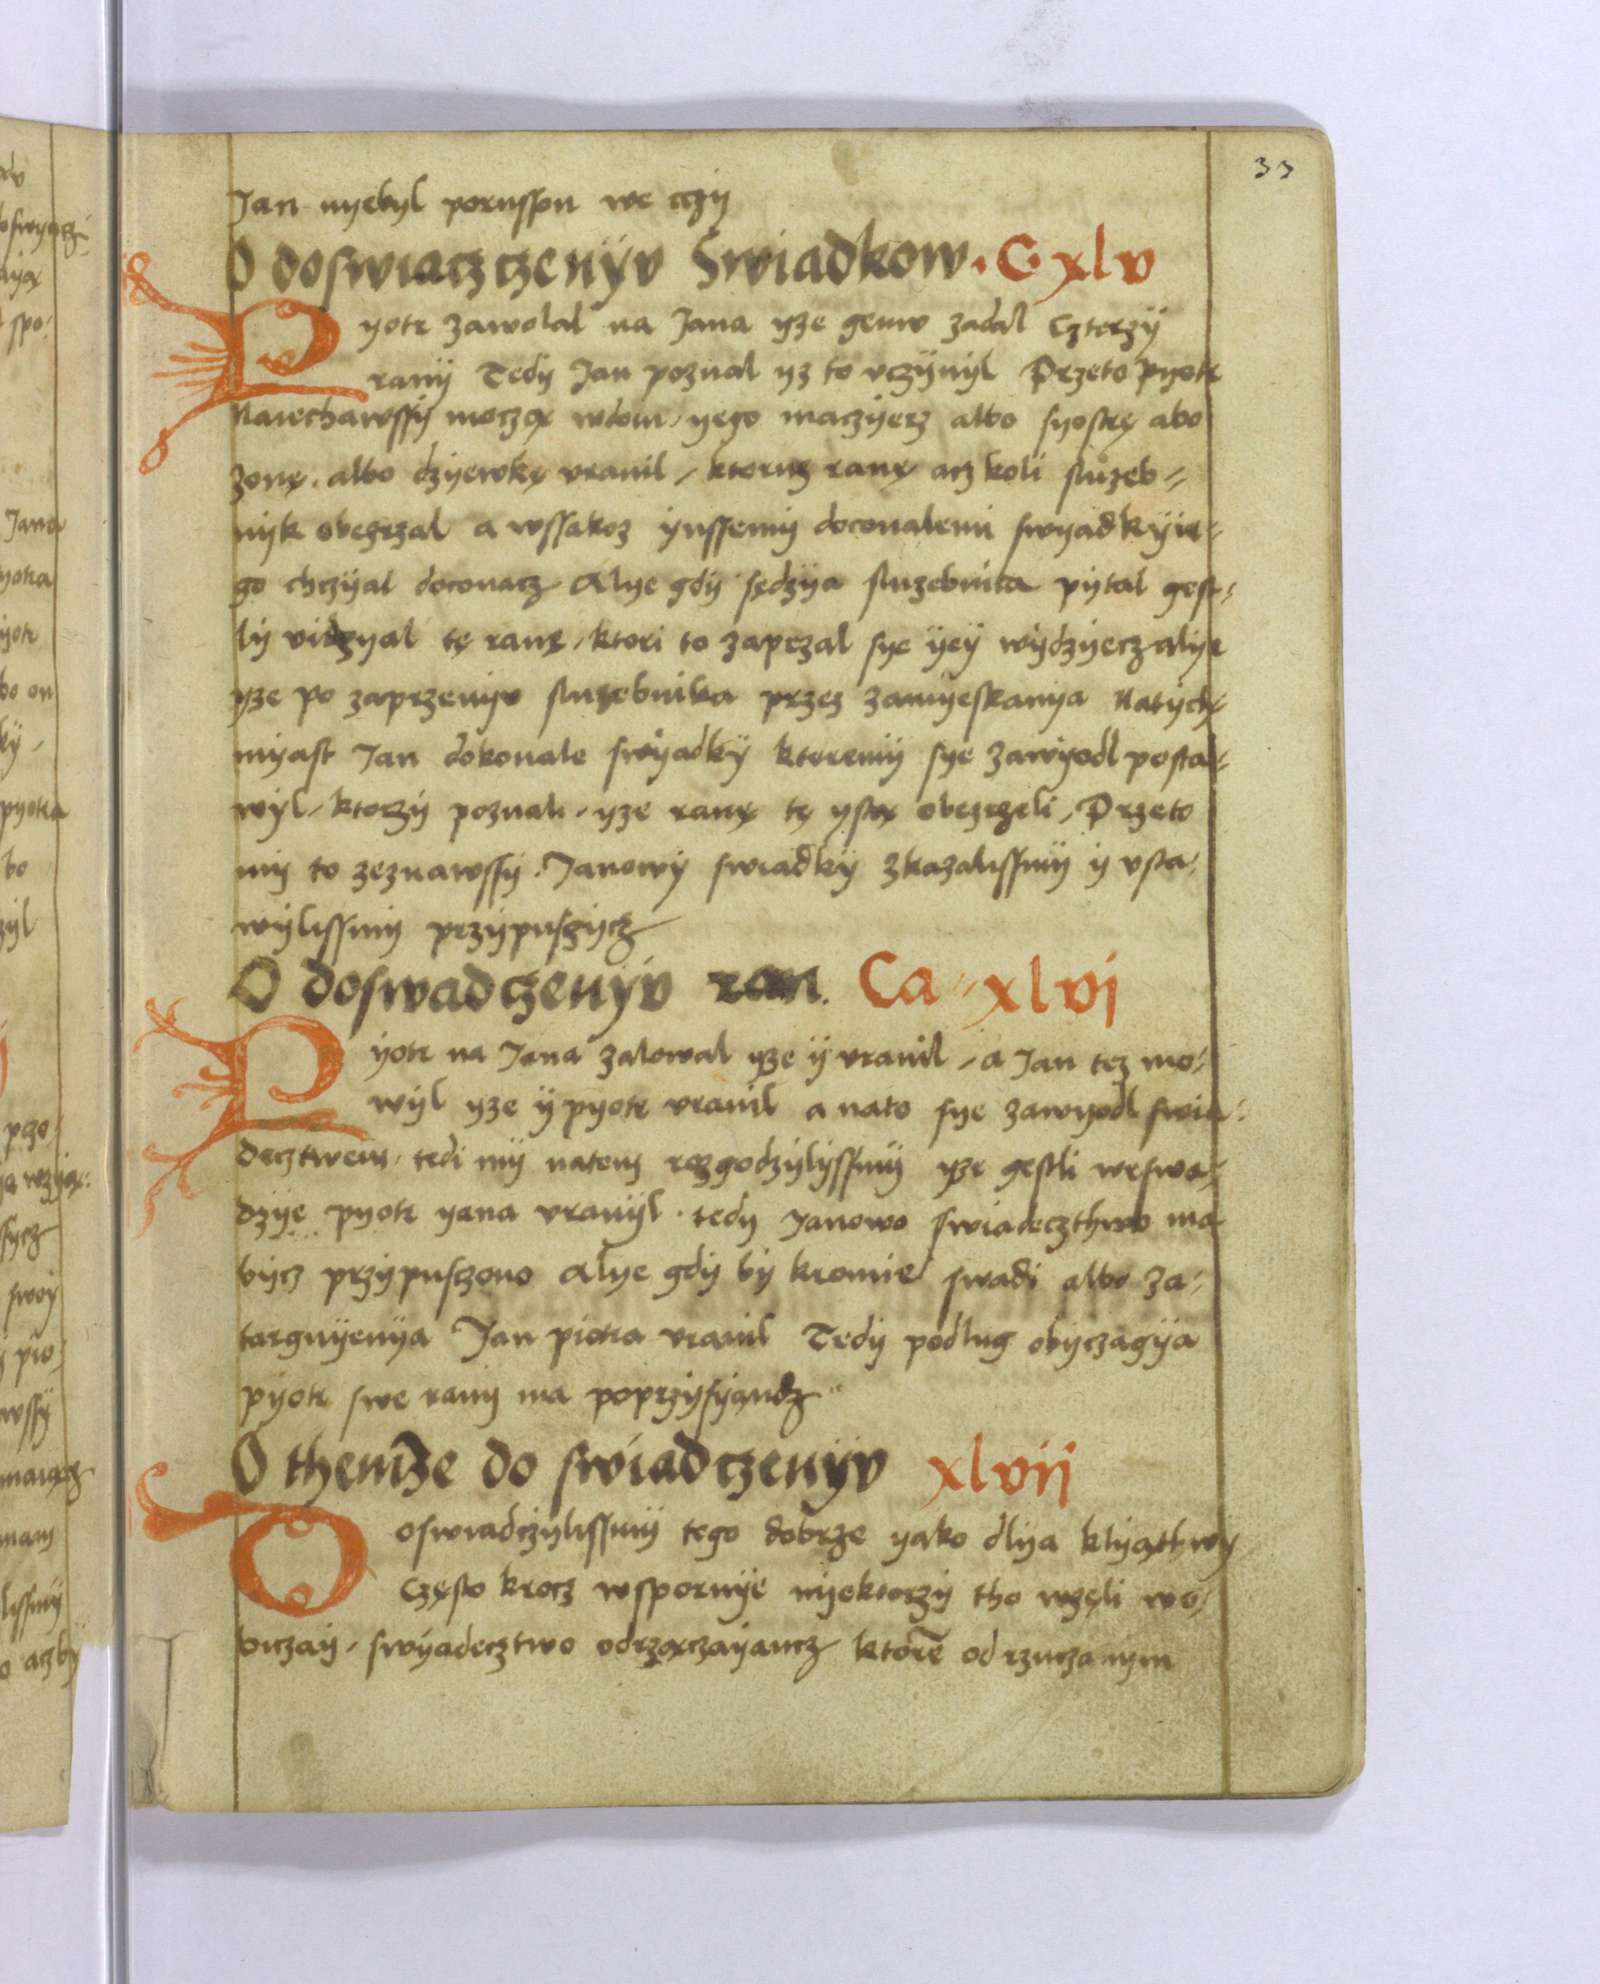 33
Jan nyebyl porusson we cczy
O doswiaczczenÿv Swiadkow · C · xlv
Pyotr zawolal na Jana yze gemv zadal czterzÿ
ranÿ Tedy Jan poznal yz to vczÿnÿl Przeto pyotr
Nawchawssÿ moczą wdom yego maczÿerz albo syostrę abo
zonę albo dzyewkę vranil / ktorucz ranę acz koli sluzeb-
nyk obezrzal a wssakoz ÿnssemÿ doconalemi swyadkÿ ie-
go chczÿal doconacz Alye gdÿ sędzÿa sluzebnica pÿtal gest-
lÿ vidzyal tę ranę / ktori to zaprzal sye ÿeÿ wÿdzÿecz alye
yze po zaprzenÿv sluzebnika przez zamyeskanya Natych-
myast Jan dokonale swÿadkÿ kteremÿ sye zawÿodl posta-
wÿl / ktorzÿ poznali / yze ranę tę ystą obezrzeli / Przeto
mÿ to zeznawssÿ Janowÿ swiadkÿ zkazalissmÿ ÿ vsta-
wÿlissmÿ przÿpusczÿcz
O doswadczenÿv ran. Ca xlvi
Pÿotr na Jana zalowal yze ÿ vranil / a Jan tez mo-
wÿl yze ÿ pyotr vranil a nato sye zawyodl swia-
decztwem tedi mÿ natom rozgodzÿlÿssmÿ yze gestli weswa-
dzÿe pyotr yana vranÿl tedy Janowo swiadeczthwo ma
bÿcz przÿpusczono Alye gdÿ bÿ kromie swadi albo za-
targnÿenÿa Jan piotra vranil Tedÿ podlug obÿczagÿa
pÿotr swe ranÿ ma poprzÿsyandz
O themze do swiadczenÿv xlvii
Doswiadczÿlissmÿ tego dobrze yako dlÿa klyąthwÿ
często krocz wspornÿe nÿektorzÿ tho wzęli wo-
biczaÿ / swÿadecztwo odrzączaÿancz ktore odrzuczanym